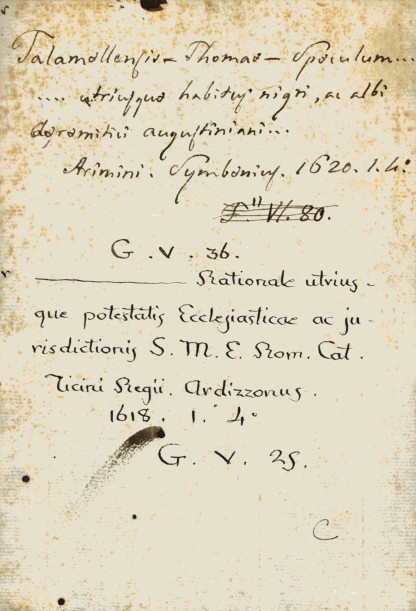 Talamollensis - Thomas - Speculum...
.... utriusque habitus nigri, ac albi
deromitici augustiniani...
Arimini. Symbenius. 1620. 1. 4°
F." VI. 80.
G. V. 36.
Rationale utrius-
que potestatis Ecclesiasticae ac ju-
risdictionis S. M. E. Rom. Cat.
Ticini Regii. Ardizzonus.
1618. 1. 4°
G. V. 25.
C